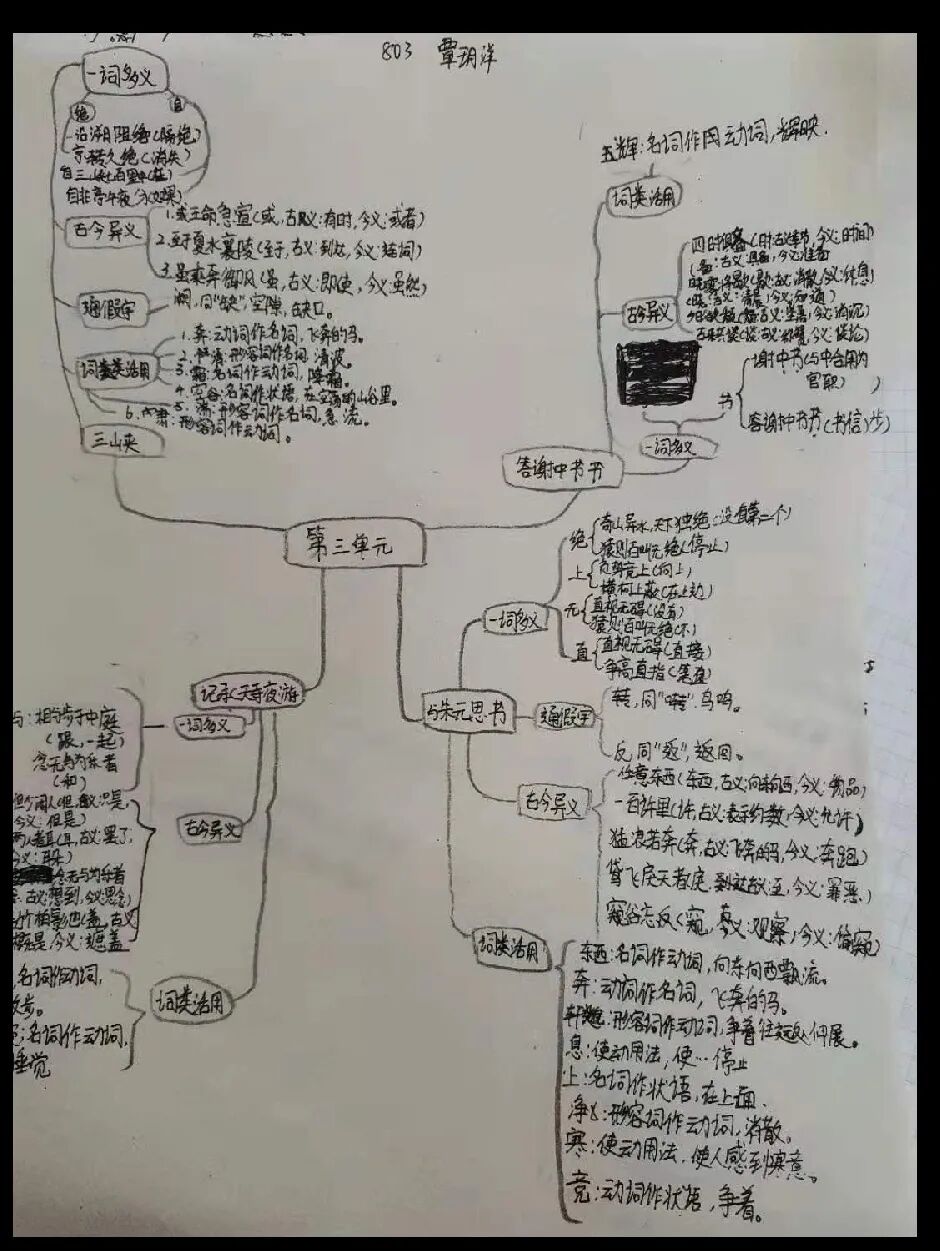 803 覃玥洋
一词多义
绝
自
沿溯阻绝(隔绝)
哀转久绝(消失)
自三峡七百里中(在)
自非亭午夜分(如果)
古今异义
1.或王命急宣(或,古义:有时,今义:或者)
2.至于夏水襄陵(至于,古义:到达,今义:连词)
3.虽乘奔御风(虽,古义:即使,今义:虽然)
通假字
阙,同"缺",空隙,缺口。
词类活用
1.奔:动词作名词,飞奔的马。
2.清:形容词作名词,清波。
3.霜:名词作动词,降霜。
4.空谷:名词作状语,在空荡的山谷里。
5.湍:形容词作名词,急流。
6.肃:形容词作动词。
三山夹
第三单元
五辉:名词作动词,辉映.
词类活用
古今异义
四时俱备(时:古义:季节,今义:时间)
(备:古义:具备,今义:准备
谢中书(与中台用内
官职)
书
答谢中书书(书信)
一词多义
答谢中书书
一词多义
绝
奇山异水,天下独绝(没有第二个)
猿则百叫无绝(停止)
上
负势竞上(向上)
横柯上蔽(在上边)
无
直视无碍(没有)
猿则百叫无绝(不)
直
直视无碍(直接)
争高直指(笔直)
与朱元思书
通假字
转,同"啭".鸟鸣。
反,同"返",返回。
古今异义
任意东西(东西,古义:向东向西,今义:物品)
一百许里(许,古义:表示约数,今义:允许)
猛浪若奔(奔,古义:飞奔的马,今义:奔跑)
鸢飞戾天者(戾,到达,古义:至,今义:罪恶)
窥谷忘反(窥,古义:观察,今义:偷窥)
词类活用
东西:名词作动词,向东向西飘流。
奔:动词作名词,飞奔的马。
轩邈:形容词作动词,争着往远处伸展。
息:使动用法,使…停止
上:名词作状语,在上面.
净:形容词作动词,消散。
寒:使动用法,使人感到寒意。
竞:动词作状语,争着。
记承天寺夜游
一词多义
与:相与步于中庭
(跟,一起)
念无与为乐者
(和)
古今异义
但少闲人(但,古义:只是,
今义:但是)
两人者耳(耳,古义:罢了,
今义:耳朵)
念无与为乐者
古义:想到,今义:思念)
竹柏影也(盖,古义
概是,今义:遮盖
词类活用
名词作动词,
散步。
名词作动词,
睡觉